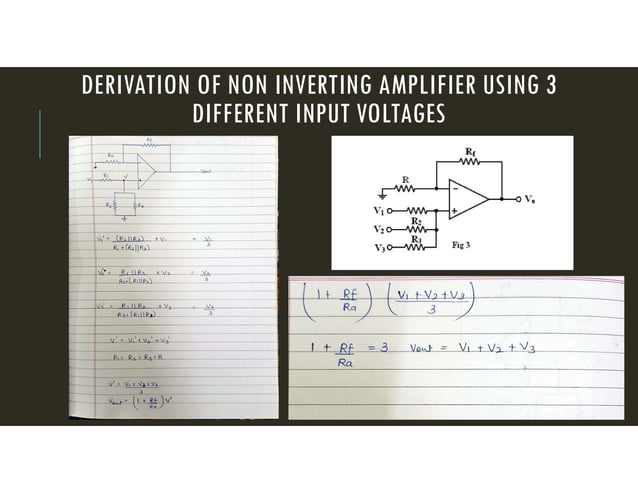 DERIVATION OF NON INVERTING AMPLIFIER USING 3
DIFFERENT INPUT VOLTAGES
Rf
Ra
R1
V1
V'
Vout
R2 R3
V1' = (R2 || R3) / (R1 + (R2 || R3)) × V1 = V1/3
V2' = R1 || R3 / (R2 + (R1 || R3)) × V2 = V2/3
V3' = R1 || R2 / (R3 + (R1 || R2)) × V3 = V3/3
V' = V1' + V2' + V3'
R1 = R2 = R3 = R
V' = V1 + V2 + V3 / 3
Vout = (1 + Rf/Ra) V'
Rf
R
V1
V2
R2
V3
R3
Vo
Fig 3
(1 + Rf/Ra) (V1 + V2 + V3 / 3)
1 + Rf/Ra = 3 Vout = V1 + V2 + V3